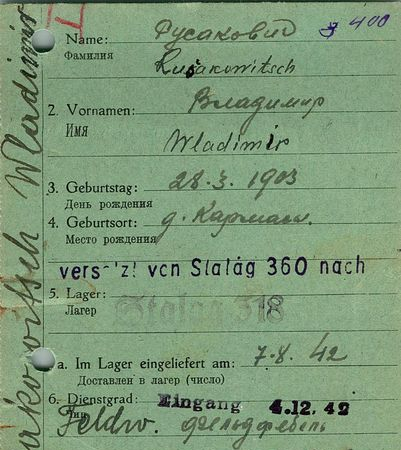 Name: Русакович 400
Фамилия
Rusakowitsch
2. Vornamen: Владимир
Имя
Wladimir
3. Geburtstag: 28.3.1903
День рождения
4. Geburtsort: д.
Место рождения
von Stalag 360 nach
5. Lager: Stalag 318
Лагер
a. Im Lager eingeliefert am: 7.8.42
Доставлен в лагер (число)
6. Dienstgrad: Eingang 4.12.42
Чин
Feldw. фельдфебель
Wladimir